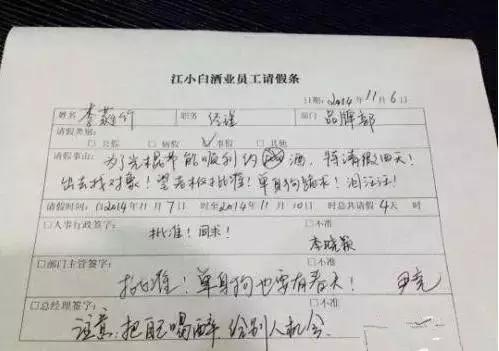 江小白酒业员工请假条
日期：2014年11月6日
姓名 李蕤竹 职务 经理 部门 品牌部
请假类别：
□公假 □病假 ☑事假 □其他
请假事由：为了光棍节能喝到约酒，特请假四天！
出去找对象！望老板批准！单身狗跪求！泪汪汪！
请假时间：自2014年11月7日 时至2014年11月10日 时总共请假4天 时
□人事行政签字： □不准
批准！同求！ 李晓颖
□部门主管签字： □不准
批准！单身狗也要有春天！
□总经理签字： □不准
注意：把自己喝醉，给别人机会